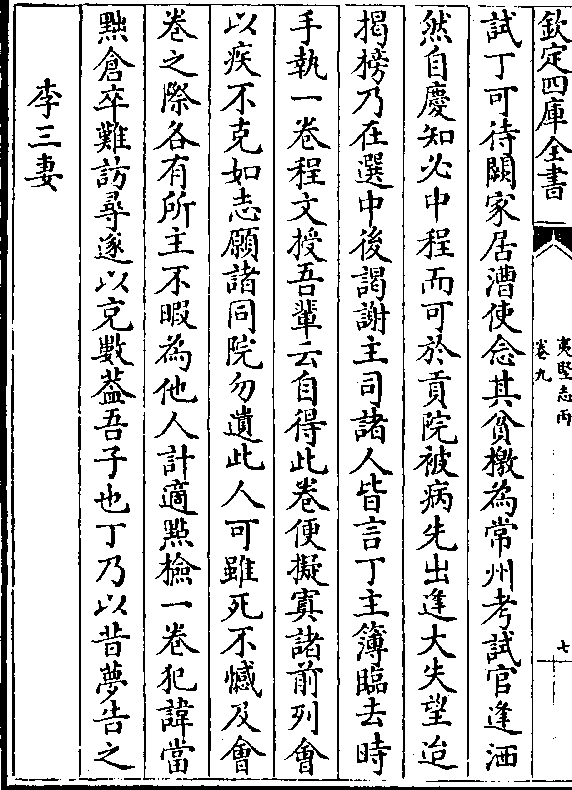 欽定四庫全書
夷堅志丙
卷九
七
試丁可待闕家居漕使念其貧檄為常州考試官逢洒
然自慶知必中程而可於貢院被病先出逢大失望迨
揭榜乃在選中後謁謝主司諸人皆言丁主簿臨去時
手執一卷程文授吾輩云自得此卷便擬寘諸前列會
以疾不克如志願諸同院勿遺此人可雖死不憾及會
卷之際各有所主不暇為他人計適㸃檢一卷犯諱當
㸃倉卒難訪尋遂以充數葢吾子也丁乃以昔夢告之
李三妻